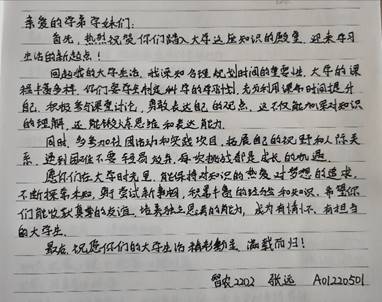 亲爱的学弟学妹们：
首先，热烈祝贺你们踏入大学这座知识的殿堂，迎来学习
生活的新起点！
回想我的大学生活，我深知合理规划时间的重要性。大学的课
程丰富多样，你们要学会制定科学的学习计划，充分利用课余时间提升自
己，积极参与课堂讨论，勇敢表达自己的观点，这不仅能加深对知识
的理解，还能锻炼思维和表达能力。
同时，多参加社团活动和实践项目，拓展自己的视野和人际关
系，遇到困难不要轻易放弃，每次挑战都是成长的机遇。
愿你们在大学时光里，能保持对知识的热爱对梦想的追求，
不断探索未知，尝试新事物，积累丰富的经验和知识。希望你
们能收获真挚的友谊，培养独立思考的能力，成为有情怀、有担当
的大学生。
最后，祝愿你们的大学生活精彩勃呈，满载而归！
智农2202 张远 A01220501